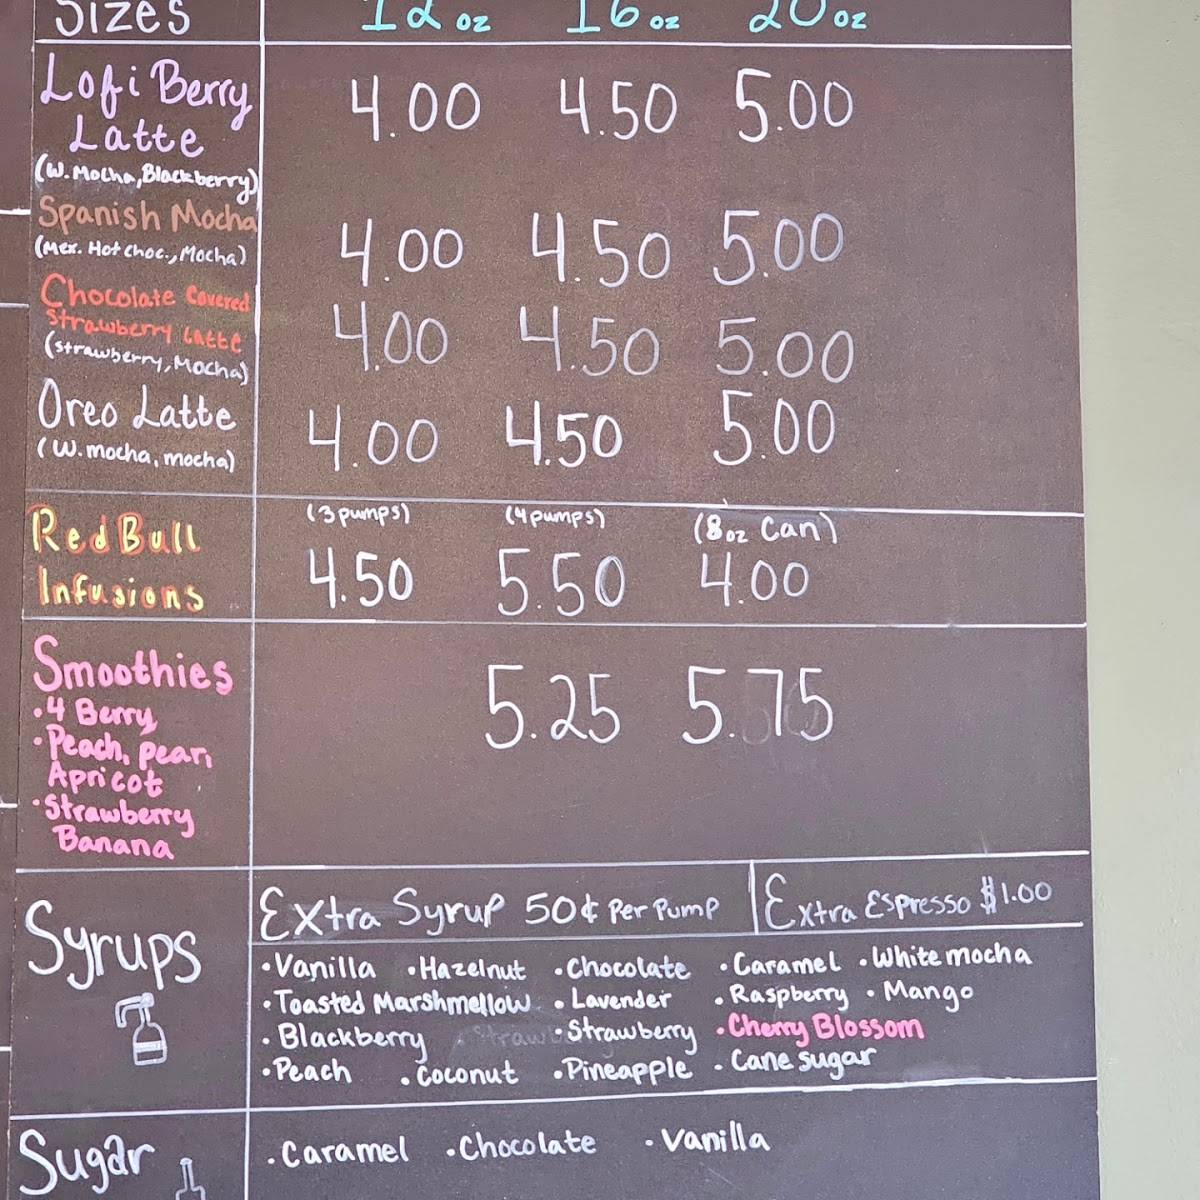 Sizes 12 oz 16 oz 20 oz
Lofi Berry
Latte
4.00 4.50 5.00
(W. Mocha, Blackberry)
Spanish Mocha
(Mex. Hot choc., Mocha)
4.00 4.50 5.00
Chocolate Covered
Strawberry Latte
(strawberry, Mocha)
4.00 4.50 5.00
Oreo Latte
(W. mocha, mocha)
4.00 4.50 5.00
(3 pumps) (4 pumps) (8oz Can)
Red Bull
Infusions
4.50 5.50 4.00
Smoothies
5.25 5.75
• 4 Berry
• Peach, pear,
Apricot
• Strawberry
Banana
Syrups
Extra Syrup 50¢ Per Pump Extra Espresso $1.00
• Vanilla • Hazelnut • Chocolate • Caramel • White mocha
• Toasted Marshmellow • Lavender • Raspberry • Mango
• Blackberry • Strawberry • Cherry Blossom
• Peach • Coconut • Pineapple • Cane sugar
Sugar
• Caramel • Chocolate • Vanilla